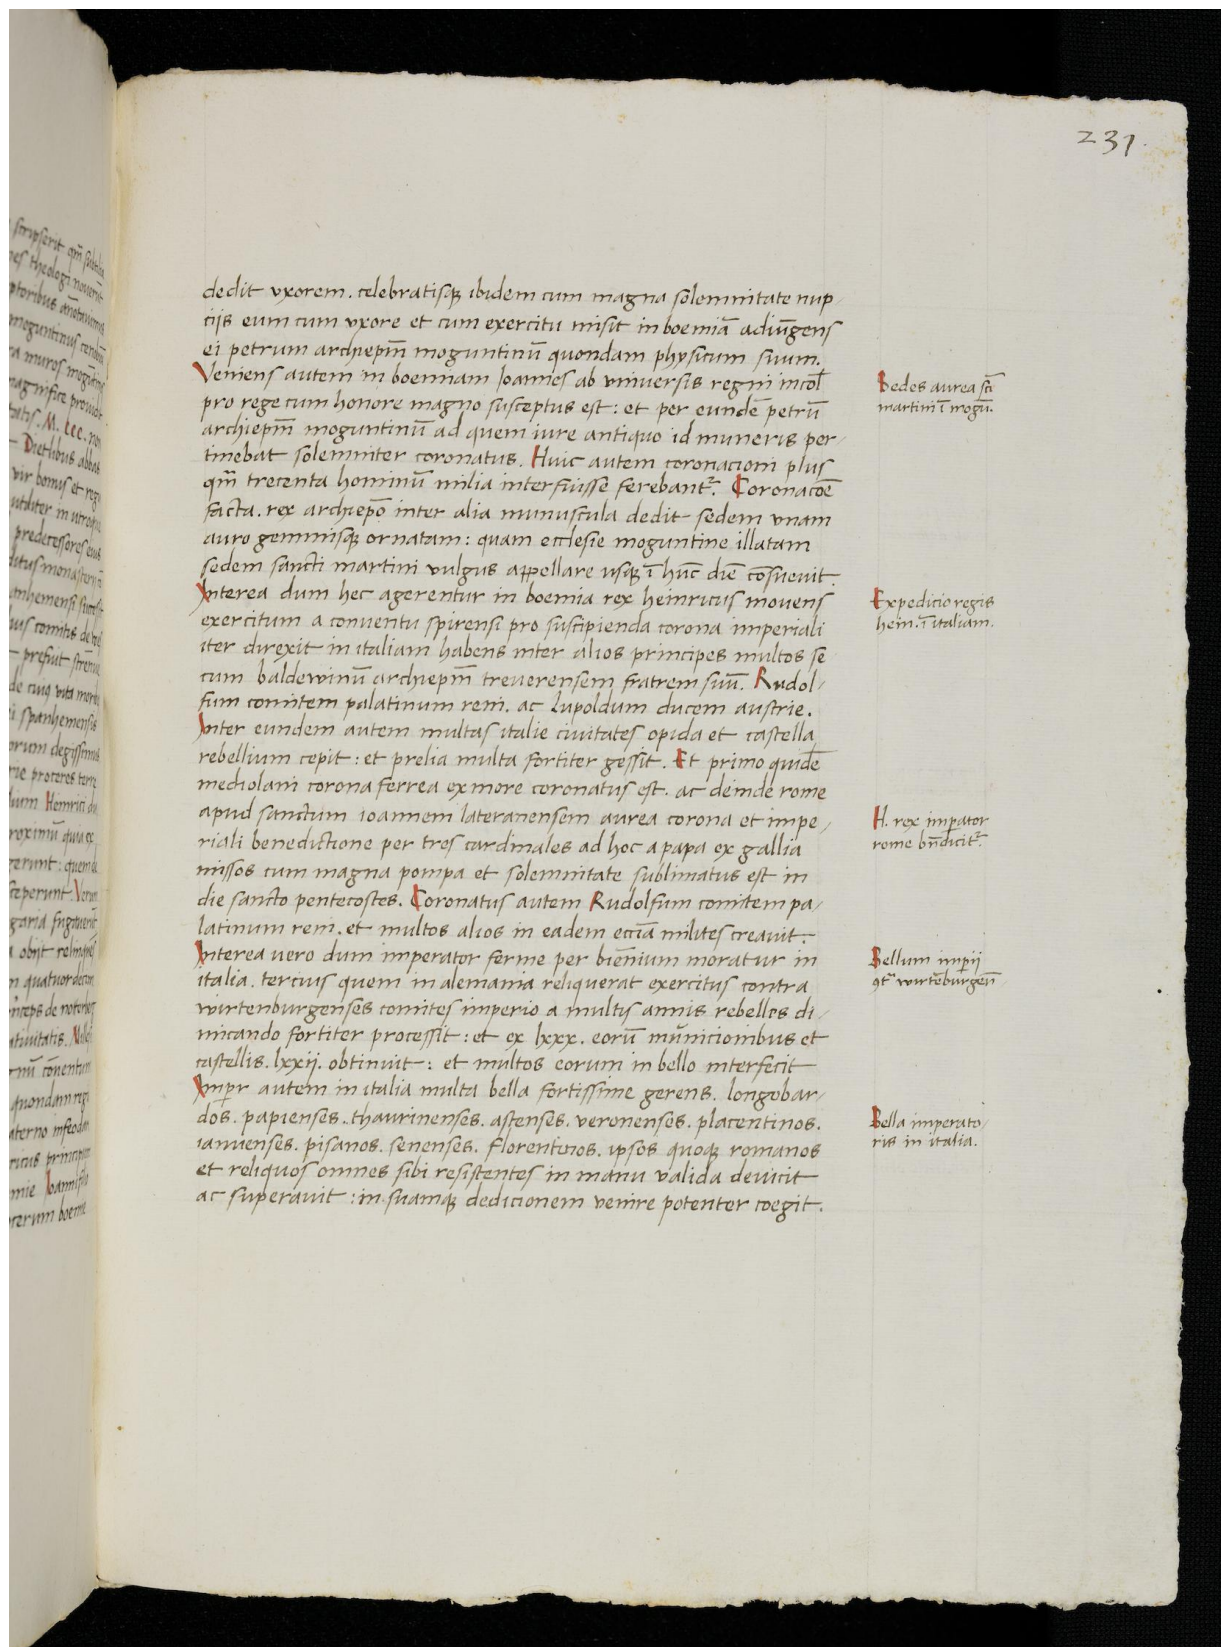 231.
dedit vxorem. celebratisqꝫ ibidem cum magna solemnitate nup-
ciis eum cum vxore et cum exercitu misit in boemiā adiūgens
ei petrum archiepm̄ moguntinū quondam physicum suum.
Veniens autem in boemiam Joannes ab vniuersis regni incol̄
pro rege cum honore magno susceptus est: et per eundē petrū
archiepm̄ moguntinū ad quem iure antiquo id muneris per-
tinebat solemniter coronatus. Huic autem coronacioni plus
qm̄ trecenta hominū milia interfuisse ferebant᷑. Coronacōe
facta. rex archiepō inter alia munuscula dedit sedem vnam
auro gemmisqꝫ ornatam: quam ecclesie moguntine illatam
sedem sancti martini vulgus appellare usqꝫ ī hūc diē cōsueuit.
Interea dum hec agerentur in boemia rex heinricus mouens
exercitum a conuentu spirensi pro suscipienda corona imperiali
iter direxit in italiam habens inter alios principes multos se
cum baldewinū archiepm̄ treuerensem fratrem suū. Rudol-
fum comitem palatinum reni. ac lupoldum ducem austrie.
Inter eundem autem multas italie ciuitates opida et castella
rebellium cepit: et prelia multa fortiter gessit. Et primo quidē
mediolani corona ferrea ex more coronatus est. ac deinde rome
apud sanctum ioannem lateranensem aurea corona et impe-
riali benedictione per tres cardinales ad hoc a papa ex gallia
missos cum magna pompa et solemnitate sublimatus est in
die sancto pentecostes. Coronatus autem Rudolfum comitem pa-
latinum reni. et multos alios in eadem eccīa milites creauit.
Interea vero dum imperator ferme per biēnium moratur in
italia. tercius quem in alemania reliquerat exercitus contra
wirtenburgenses comites imperio a multis annis rebelles di-
micando fortiter processit: et ex lxxx. eorū municionibus et
castellis. lxxij. obtinuit: et multos eorum in bello interfecit
Impr̄ autem in italia multa bella fortissime gerens. longobar-
dos. papienses. thaurinenses. astenses. veronenses. placentinos.
ianuenses. pisanos. senenses. florentinos. ipsos quoqꝫ romanos
et reliquos omnes sibi resistentes in manu valida deuicit
ac superauit: in suamqꝫ dedicionem venire potenter coegit.
Sedes aurea scī
martini ī mogū.
Expedicio regis
hein. ī italiam.
H. rex imperator
rome bn̄dicit᷑.
Bellum imperij
ꝯtᵃ wirtēburgen̄
Bella imperato-
ris in italia.